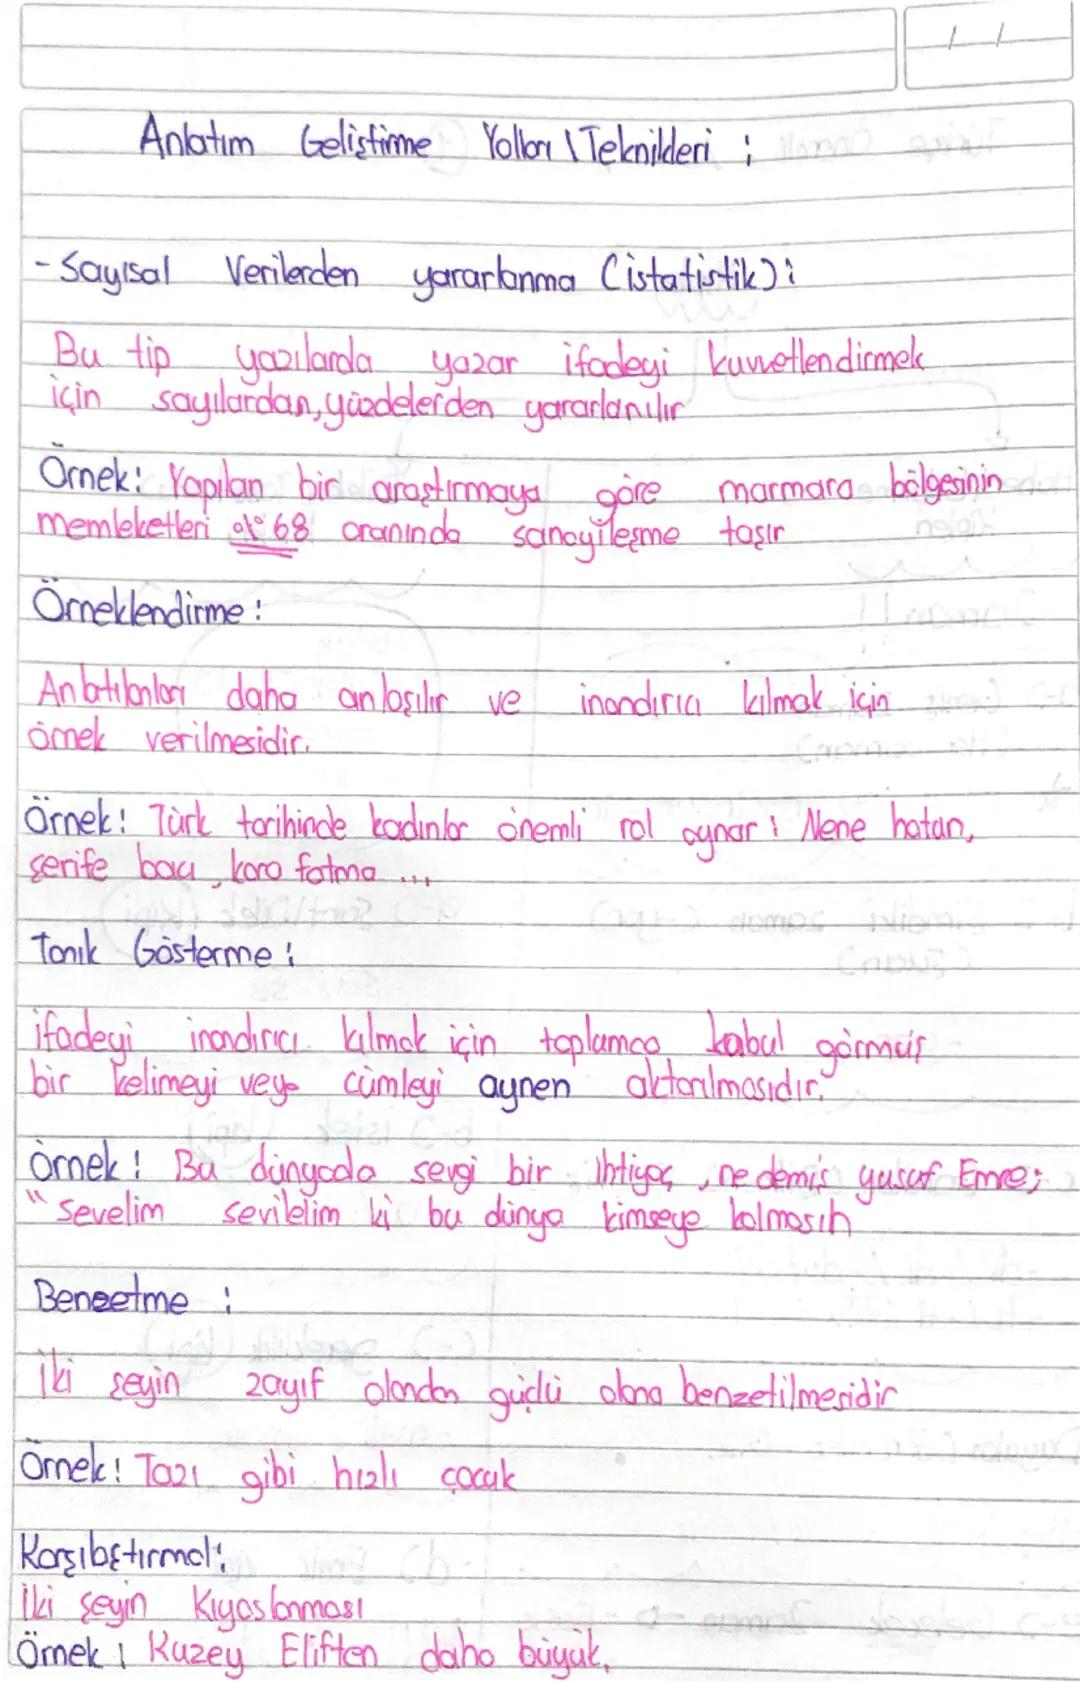 Anlatım Geliştirme Yolları \ Teknikleri :
- Sayısal Verilerden yararlanma (istatistik) :
Bu tip yazılarda yazar ifadeyi kuvvetlendirmek
için sayılardan, yüzdelerden yararlanılır
Örnek: Yapılan bir araştırmaya göre marmara bölgesinin
memleketleri %68 oranında sanayileşme taşır
Örneklendirme :
Anlatılanları daha anlaşılır ve inandırıcı kılmak için
örnek verilmesidir.
Örnek: Türk tarihinde kadınlar önemli rol oynar : Nene hatun,
şerife bacı, kara fatma ...
Tanık Gösterme :
ifadeyi inandırıcı kılmak için toplumca kabul görmüş
bir kelimeyi veya cümleyi aynen aktarılmasıdır.
Örnek: Bu dünyada sevgi bir ihtiyaç, ne demiş yusuf Emre;
"Sevelim sevilelim ki bu dünya kimseye kalmasın
Benzetme :
İki şeyin zayıf olandan güçlü olana benzetilmesidir
Örnek: Tazı gibi hızlı çocuk
Karşılaştırma:
İki şeyin Kıyaslanması
Örnek : Kuzey Eliften daha büyük.